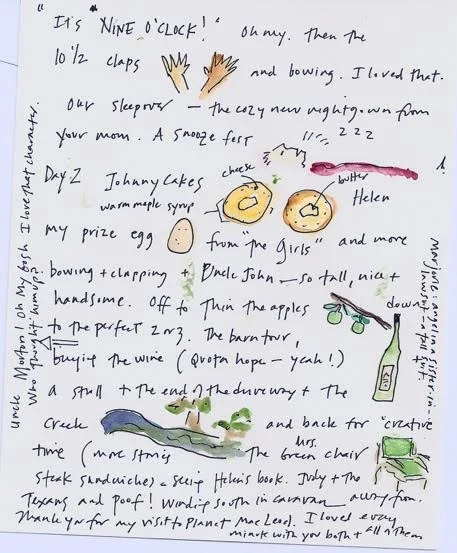 "It's "NINE O'CLOCK!" Oh my. Then the
10 1/2 claps and bowing. I loved that.
Our sleepover — the cozy new nightgown from
your mom. A snooze fest z z z
Day 2 Johnny Cakes cheese butter Helen
warm maple syrup
my prize egg from "the Girls" and more
bowing + clapping + Uncle John — so tall, nice +
handsome. Off to thin the apples down
to the perfect 2 or 3. The barn tour,
buying the wine (Quota hope — yeah!)
a stroll to the end of the driveway + the
creek and back for "creative
time (more stories hrs. The Green chair
steak sandwiches — seeing Helen's book. July + the
Texans and poof! Winding south in caravan away from.
Thank you for my visit to Planet MacLeod. I loved every
minute with you both + all of them
Uncle Morton! Oh my Gosh I love that character.
Who thought him up?
Marjorie: a sister-in-